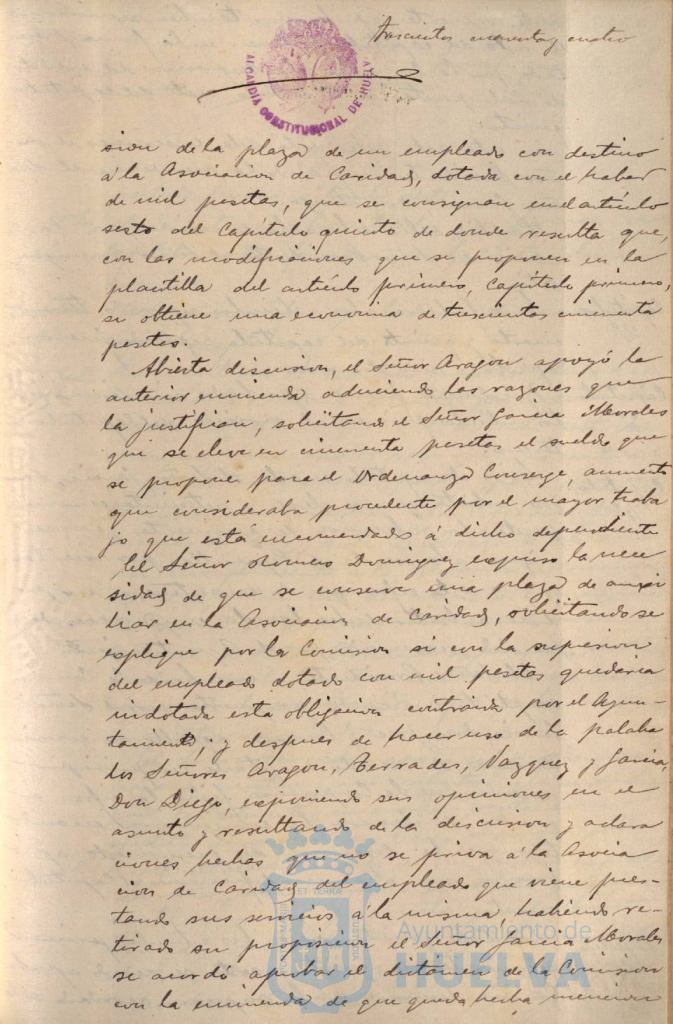 trescientos cuarenta y cuatro
ALCALDIA CONSTITUCIONAL DE HUELVA
sion de la plaza de un empleado con destino
á la Asociacion de Caridad, dotada con el haber
de mil pesetas, que se consignan en el artículo
sesto del Capítulo quinto de donde resulta que,
con las modificaciones que se proponen en la
plantilla del artículo primero, Capítulo primero,
se obtiene una economia de trescientas cincuenta
pesetas.
Abierta discusion, el Señor Aragon apoyó la
anterior enmienda aduciendo las razones que
la justifican, solicitando el Señor Garcia Morales
que se eleve en cincuenta pesetas el sueldo que
se propone para el Ordenanza Conserge, aumento
que consideraba procedente por el mayor traba
jo que está encomendado á dicho dependiente
El Señor Romero Dominguez expuso la nece
sidad de que se conserve una plaza de auxi
liar en la Asociacion de Caridad, solicitando se
explique por la Comision si con la supresion
del empleado dotado con mil pesetas quedaria
indotada esta obligacion contraida por el Ayun-
tamiento; y despues de hacer uso de la palabra
los Señores Aragon, Terrades, Vazquez y Garcia,
Don Diego, exponiendo sus opiniones en el
asunto y resultando de la discusion y aclara
ciones hechas que no se priva á la Asocia
cion de Caridad del empleado que viene pres-
tando sus servicios á la misma, habiendo re-
tirado su proposicion el Señor Garcia Morales
se acordó aprobar el dictamen de la Comision
con la enmienda de que queda hecha mencion
Ayuntamiento de
HUELVA